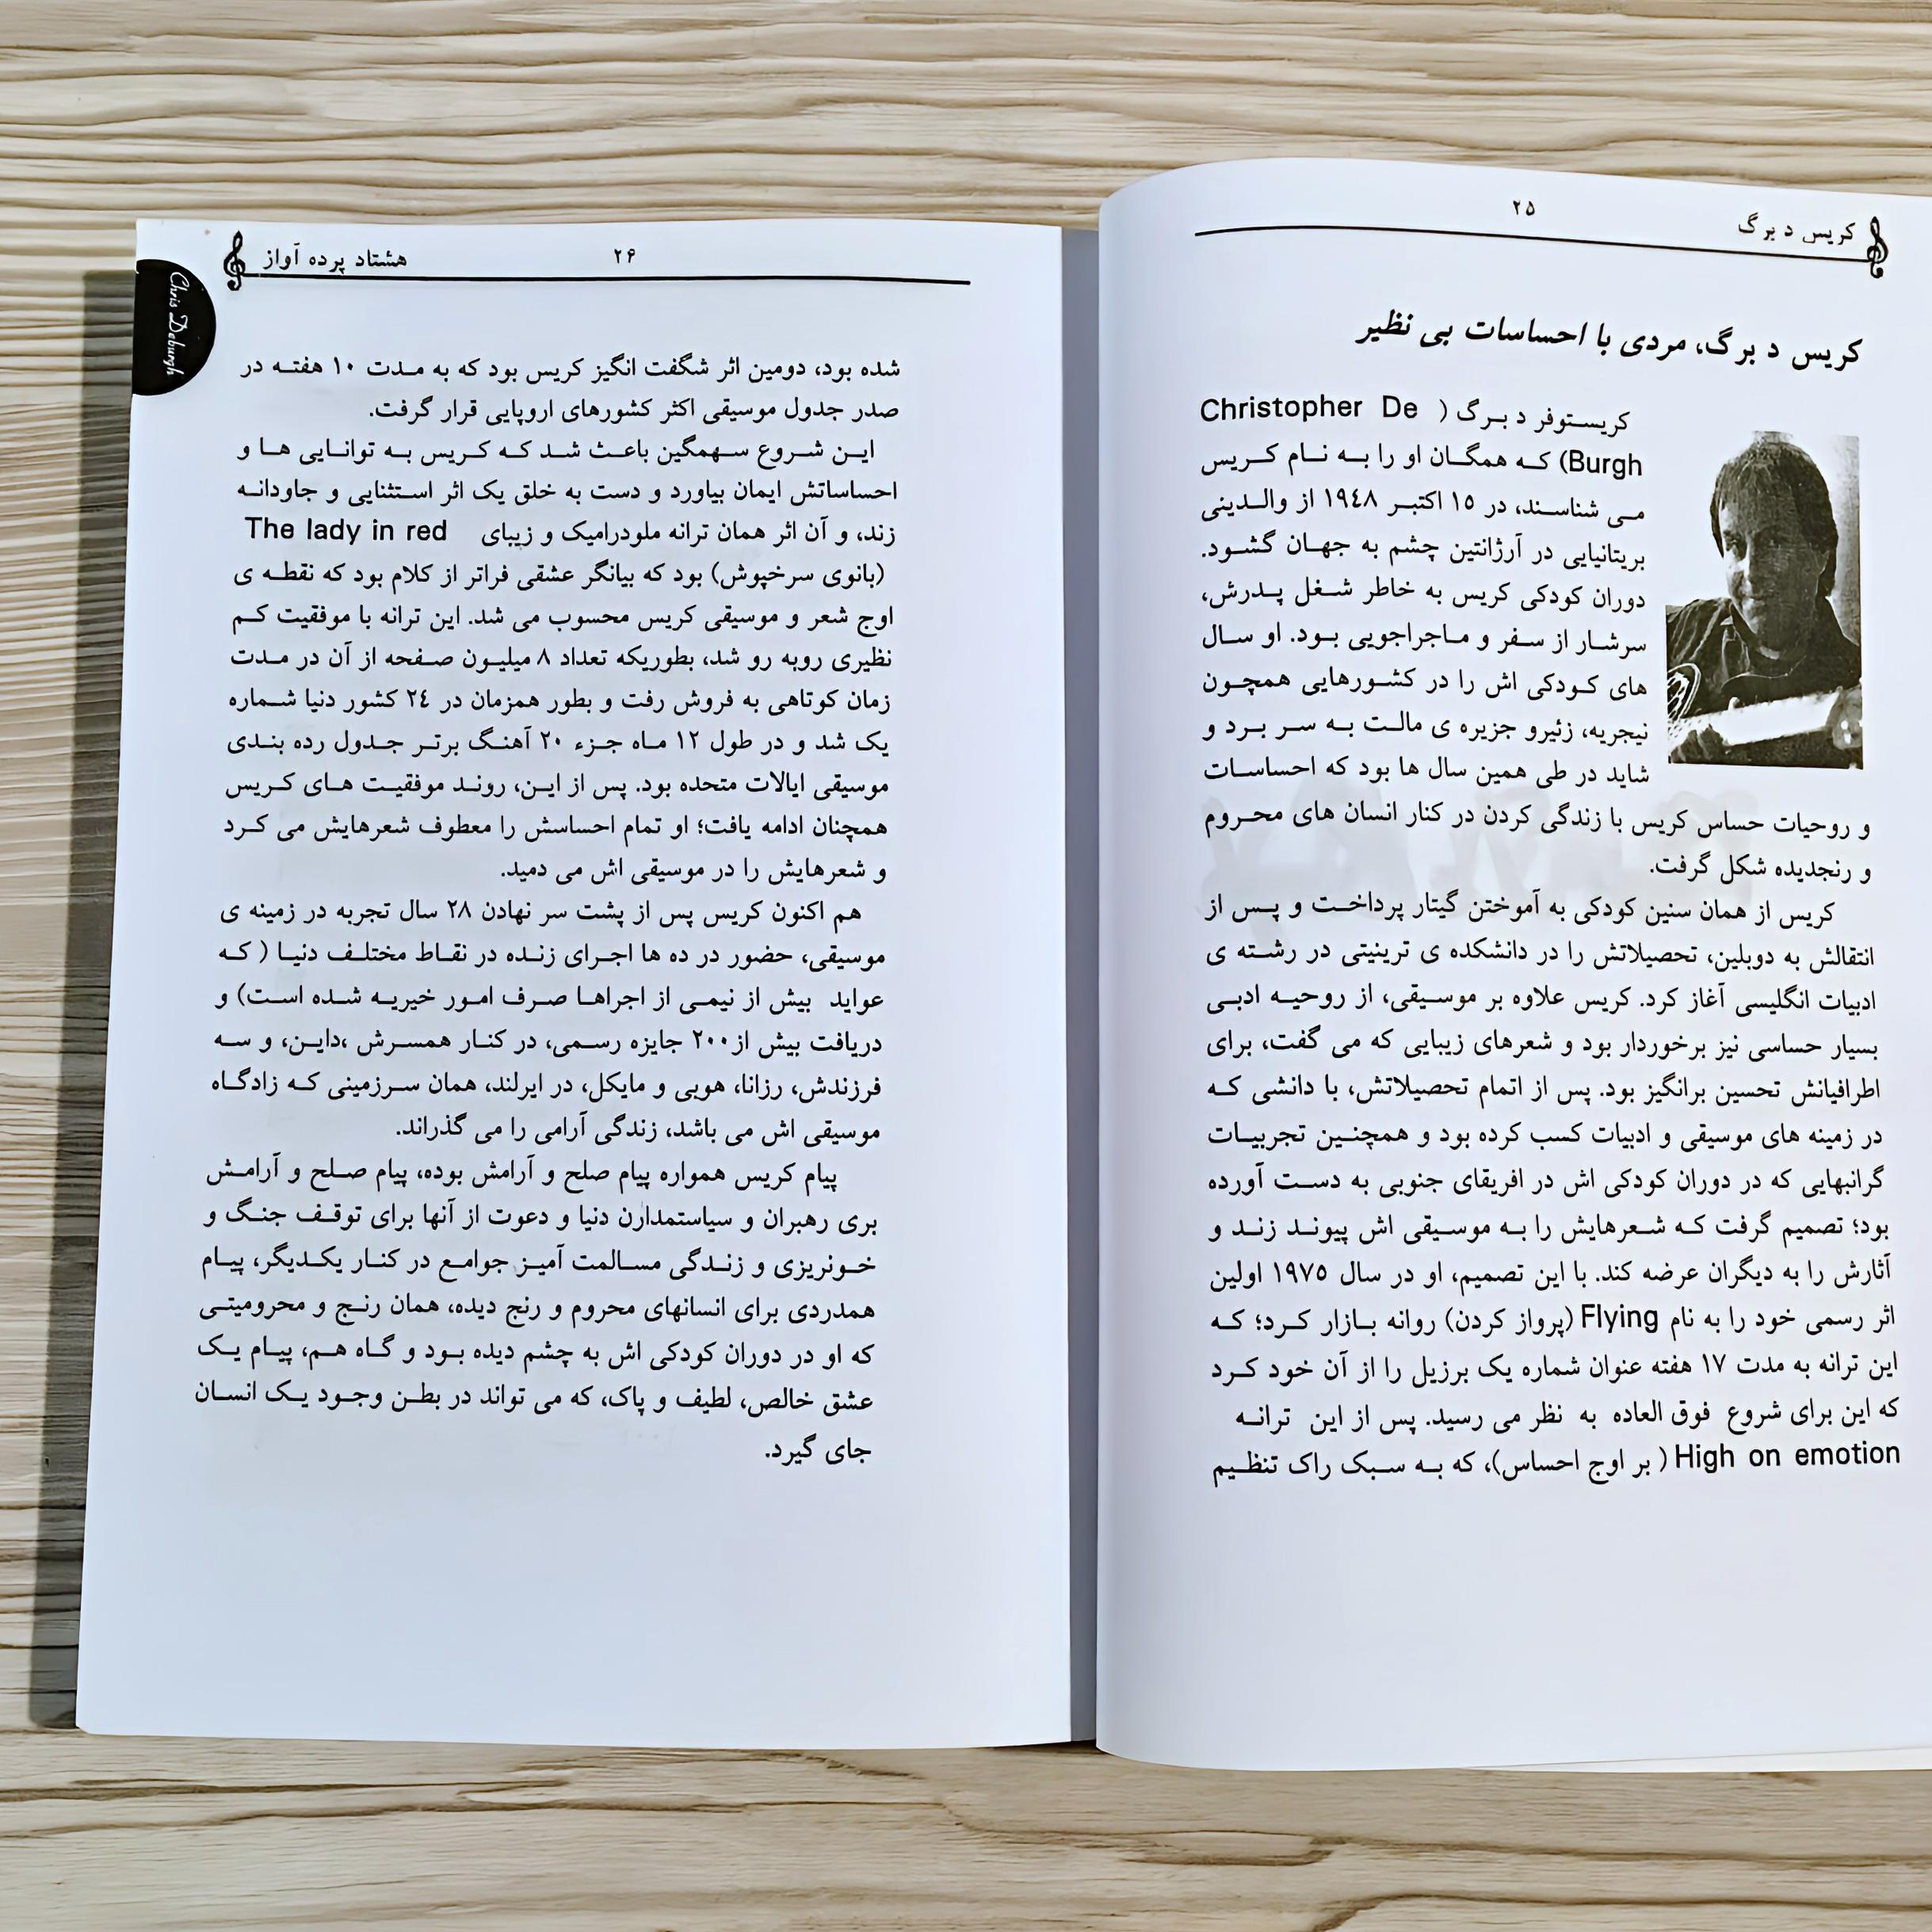 کریس د برگ
۲۵
کریس د برگ، مردی با احساسات بی نظیر
کریستوفر د برگ ( Christopher De
Burgh) که همگان او را به نام کریس
می شناسند، در ۱۵ اکتبر ۱۹٤۸ از والدینی
بریتانیایی در آرژانتین چشم به جهان گشود.
دوران کودکی کریس به خاطر شغل پدرش،
سرشار از سفر و ماجراجویی بود. او سال
های کودکی اش را در کشورهایی همچون
نیجریه، زئیرو جزیره ی مالت به سر برد و
شاید در طی همین سال ها بود که احساسات
و روحیات حساس کریس با زندگی کردن در کنار انسان های محروم
و رنجدیده شکل گرفت.
کریس از همان سنین کودکی به آموختن گیتار پرداخت و پس از
انتقالش به دوبلین، تحصیلاتش را در دانشکده ی ترینیتی در رشته ی
ادبیات انگلیسی آغاز کرد. کریس علاوه بر موسیقی، از روحیه ادبی
بسیار حساسی نیز برخوردار بود و شعرهای زیبایی که می گفت، برای
اطرافیانش تحسین برانگیز بود. پس از اتمام تحصیلاتش، با دانشی که
در زمینه های موسیقی و ادبیات کسب کرده بود و همچنین تجربیات
گرانبهایی که در دوران کودکی اش در افریقای جنوبی به دست آورده
بود؛ تصمیم گرفت که شعرهایش را به موسیقی اش پیوند زند و
آثارش را به دیگران عرضه کند. با این تصمیم، او در سال ۱۹۷۵ اولین
اثر رسمی خود را به نام Flying (پرواز کردن) روانه بازار کرد؛ که
این ترانه به مدت ۱۷ هفته عنوان شماره یک برزیل را از آن خود کرد
که این برای شروع فوق العاده به نظر می رسید. پس از این ترانه
High on emotion ( بر اوج احساس)، که به سبک راک تنظیم
هشتاد پرده آواز
۲۶
Chris Deburgh
شده بود، دومین اثر شگفت انگیز کریس بود که به مدت ۱۰ هفته در
صدر جدول موسیقی اکثر کشورهای اروپایی قرار گرفت.
این شروع سهمگین باعث شد که کریس به توانایی ها و
احساساتش ایمان بیاورد و دست به خلق یک اثر استثنایی و جاودانه
زند، و آن اثر همان ترانه ملودرامیک و زیبای The lady in red
(بانوی سرخپوش) بود که بیانگر عشقی فراتر از کلام بود که نقطه ی
اوج شعر و موسیقی کریس محسوب می شد. این ترانه با موفقیت کم
نظیری روبه رو شد، بطوریکه تعداد ۸ میلیون صفحه از آن در مدت
زمان کوتاهی به فروش رفت و بطور همزمان در ۲٤ کشور دنیا شماره
یک شد و در طول ۱۲ ماه جزء ۲۰ آهنگ برتر جدول رده بندی
موسیقی ایالات متحده بود. پس از این، روند موفقیت های کریس
همچنان ادامه یافت؛ او تمام احساسش را معطوف شعرهایش می کرد
و شعرهایش را در موسیقی اش می دمید.
هم اکنون کریس پس از پشت سر نهادن ۲۸ سال تجربه در زمینه ی
موسیقی، حضور در ده ها اجرای زنده در نقاط مختلف دنیا ( که
عواید بیش از نیمی از اجراها صرف امور خیریه شده است) و
دریافت بیش از ۲۰۰ جایزه رسمی، در کنار همسرش ،داین، و سه
فرزندش، رزانا، هوبی و مایکل، در ایرلند، همان سرزمینی که زادگاه
موسیقی اش می باشد، زندگی آرامی را می گذراند.
پیام کریس همواره پیام صلح و آرامش بوده، پیام صلح و آرامش
بری رهبران و سیاستمدارن دنیا و دعوت از آنها برای توقف جنگ و
خونریزی و زندگی مسالمت آمیز جوامع در کنار یکدیگر، پیام
همدردی برای انسانهای محروم و رنج دیده، همان رنج و محرومیتی
که او در دوران کودکی اش به چشم دیده بود و گاه هم، پیام یک
عشق خالص، لطیف و پاک، که می تواند در بطن وجود یک انسان
جای گیرد.